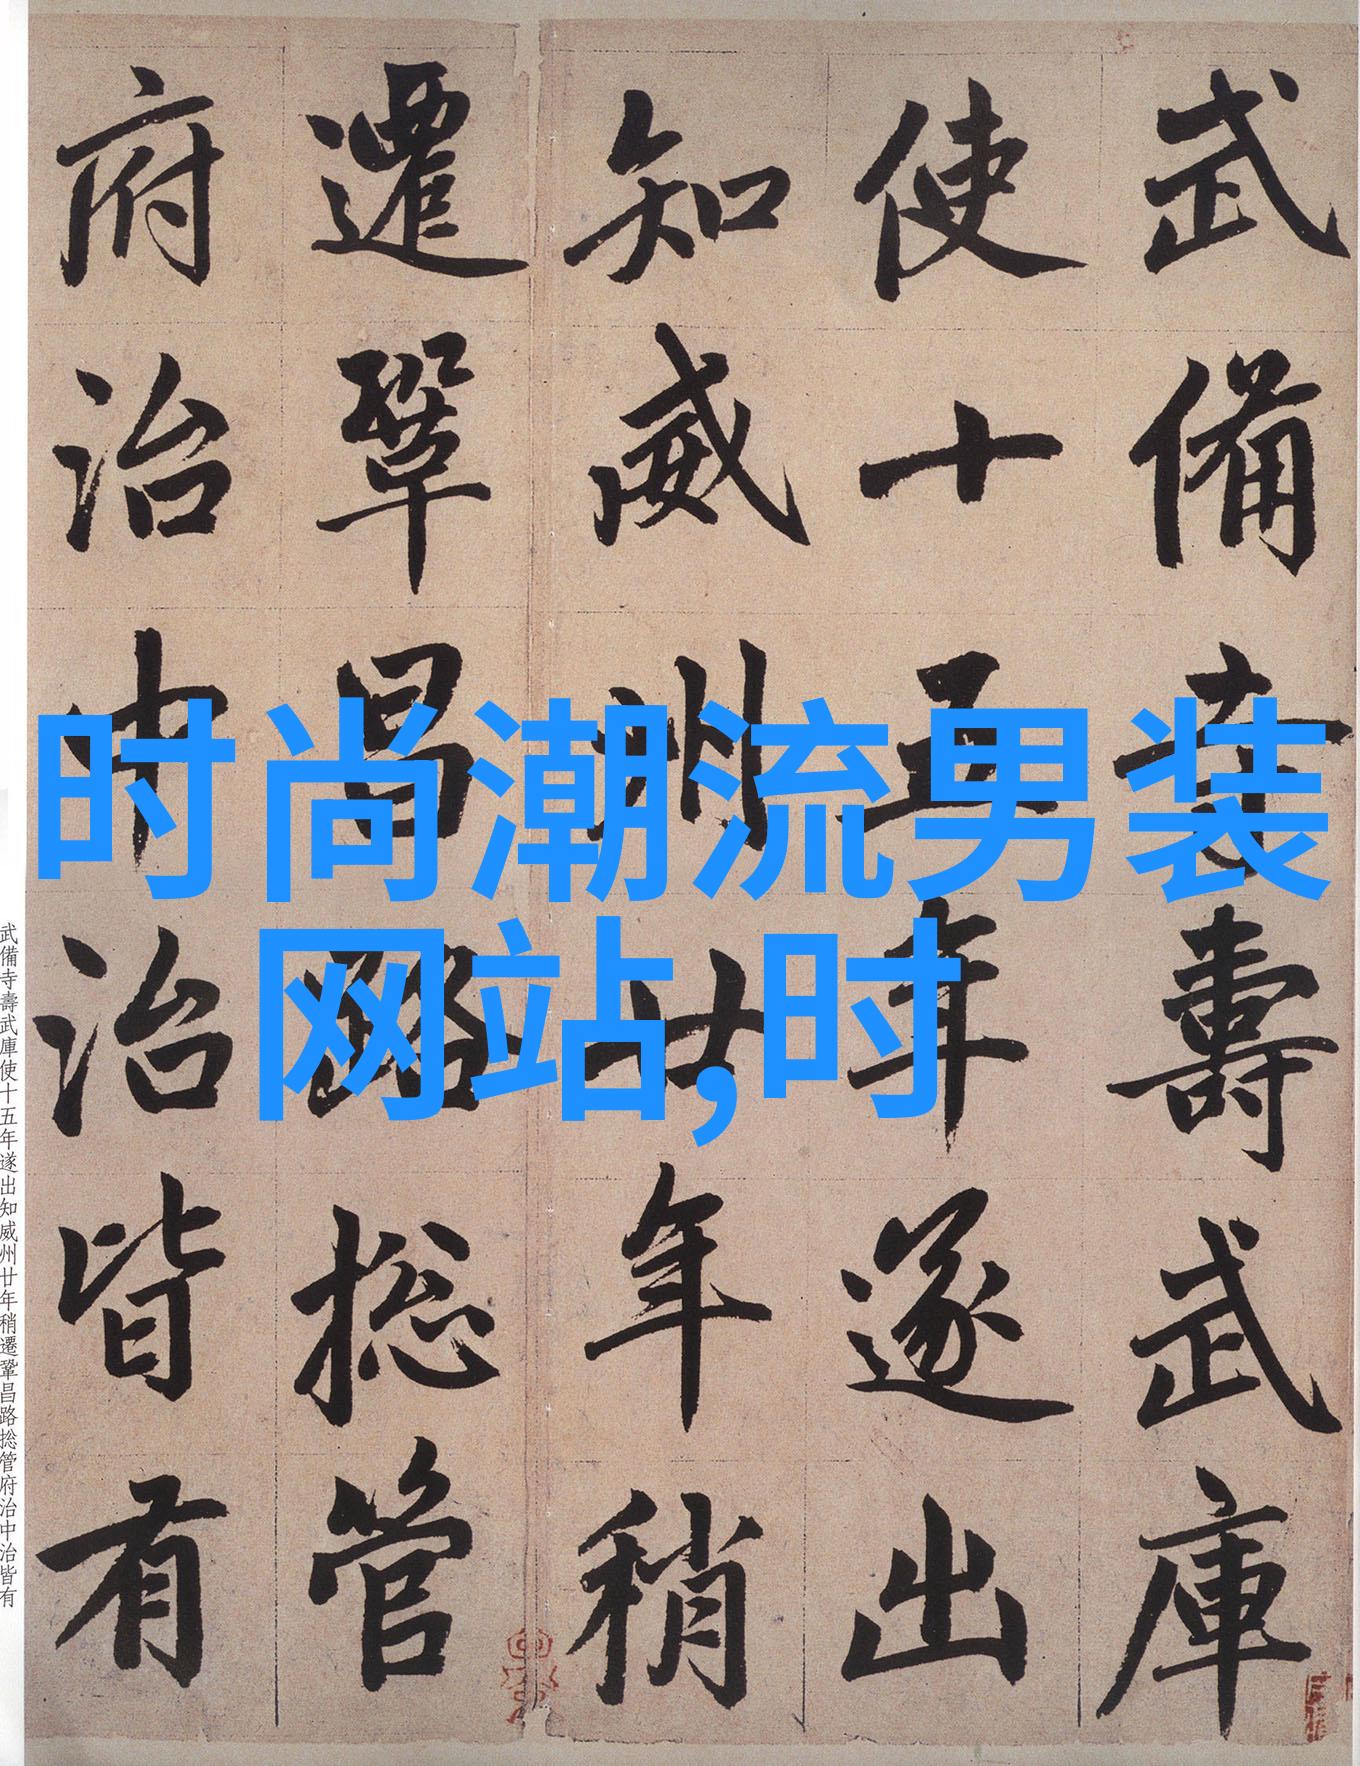 武備寺壽武庫
使十五年遂出
知威州廿年稍
遷鞏昌路捴管
府治中治皆有
时尚潮流男装
网站,时
武備寺壽武庫使十五年遂出知威州廿年稍遷鞏昌路捴管府治中治皆有